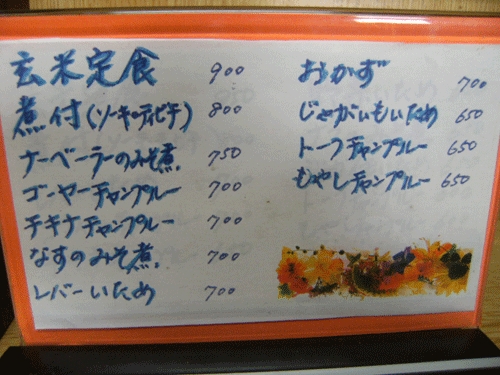 玄米定食 900
煮付(ソーキ・ティビチ) 800
ナーベーラーのみそ煮 750
ゴーヤーチャンプルー 700
チキナチャンプルー 700
なすのみそ煮 700
レバーいため 700
おかず 700
じゃがいもいため 650
トーフチャンプルー 650
もやしチャンプルー 650